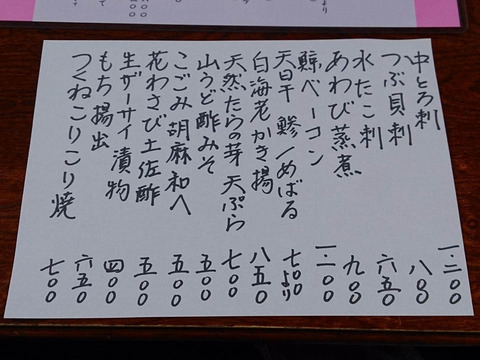 中とろ刺 一.二〇〇
つぶ貝刺 八〇〇
水たこ刺 六五〇
あわび蒸煮 九〇〇
鯨ベーコン 一.一〇〇
天日干 鯵/めばる 七〇〇より
白海老かき揚 八五〇
天然たらの芽 天ぷら 七〇〇
山うど酢みそ 五〇〇
こごみ胡麻和へ 五〇〇
花わさび土佐酢 五〇〇
生ザーサイ漬物 四〇〇
もち揚出 六五〇
つくねこりこり焼 七〇〇